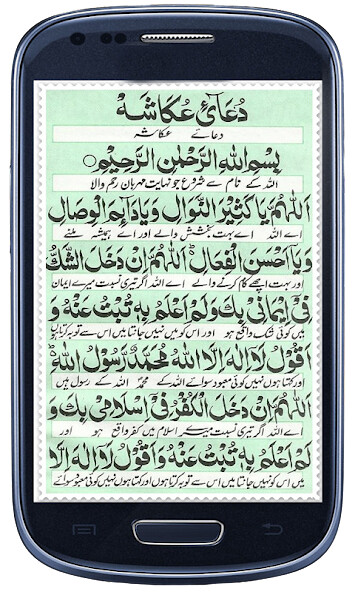 دُعَائے عُكَاشَہ
دعائے عکاشہ
بِسْمِ اللهِ الرَّحْمٰنِ الرَّحِيْمِ
اللہ کے نام سے شروع جو نہایت مہربان رحم والا
اَللّٰهُمَّ يَا كَثِيْرَ النَّوَالِ وَيَا دَآئِمَ الْوِصَالِ
اے اللہ اے بہت بخشش والے اور اے ہمیشہ ملنے
وَيَآ اَحْسَنَ الْفَعَالِ اَللّٰهُمَّ اِنْ دَخَلَ الشَّكُّ
اور بہت اچھے کام کرنے والے اے اللہ اگر تیری نسبت میرے ایمان
فِيْٓ اِيْمَانِيْ بِكَ وَلَمْ اَعْلَمْ بِهٖ تُبْتُ عَنْهُ وَ
میں کوئی شک واقع ہو اور اس کو میں نہیں جانتا میں اس سے توبہ کرتا ہوں
اَقُوْلُ لَآ اِلٰهَ اِلَّا اللهُ مُحَمَّدٌ رَّسُوْلُ اللهِ
اور کہتا ہوں نہیں کوئی معبود سوائے اللہ کے محمدؐ اللہ کے رسول ہیں
اَللّٰهُمَّ اِنْ دَخَلَ الْكُفْرُ فِيْٓ اِسْلَامِيْ بِكَ وَ
اے اللہ اگر تیری نسبت میرے اسلام میں کفر واقع ہو اور
لَمْ اَعْلَمْ بِهٖ تُبْتُ عَنْهُ وَاَقُوْلُ لَآ اِلٰهَ اِلَّا
میں اس کو نہیں جانتا میں اس سے توبہ کرتا ہوں اور کہتا ہوں نہیں کوئی معبود سوائے